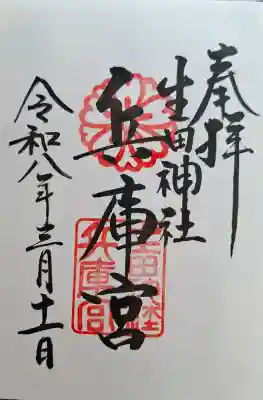 奉拝
生田神社
兵庫宮
令和八年三月十一日
兵庫宮